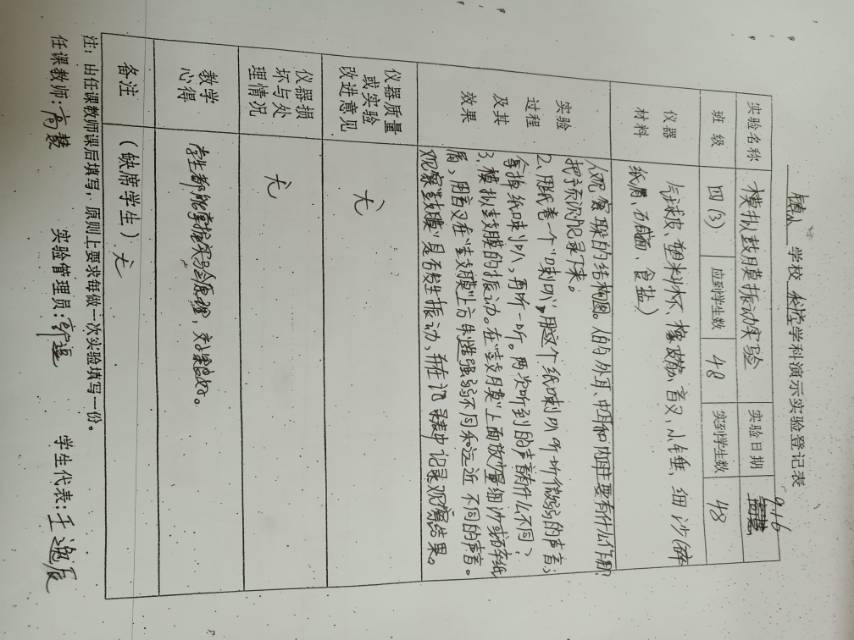 学校 科学 学科演示实验登记表
实验名称 模拟鼓膜振动实验 实验日期 9.16
班级 四(3) 应到学生数 48 实到学生数 48
仪器材料 气球皮、塑料杯、橡皮筋、音叉、小锤、细沙(碎
纸屑、石成面、食盐)
实验过程及其效果
1.观察耳的结构图。人的外耳、中耳和内耳主要有什么作用?
把予页测记录下来。
2.用纸卷一个“喇叭”,用这个纸喇叭听听微弱的声音;
拿掉纸喇叭,再听一听。两次听到的声音有什么不同?
3.模拟鼓膜的振动。在“鼓膜”上面放少量细沙或碎纸
屑,用音叉在“鼓膜”上方制造强弱不同和远近不同的声音。
观察“鼓膜”是否发生振动,并在记录表中记录观察结果。
仪器质量或实验改进意见 无
仪器损坏与处理情况 无
教学心得 学生都能掌握实验原理,效果良好。
备注 (缺席学生) 无
注:由任课教师课后填写,原则上要求每做一次实验填写一份。
任课教师:高慧 实验管理员: 学生代表:王逸辰